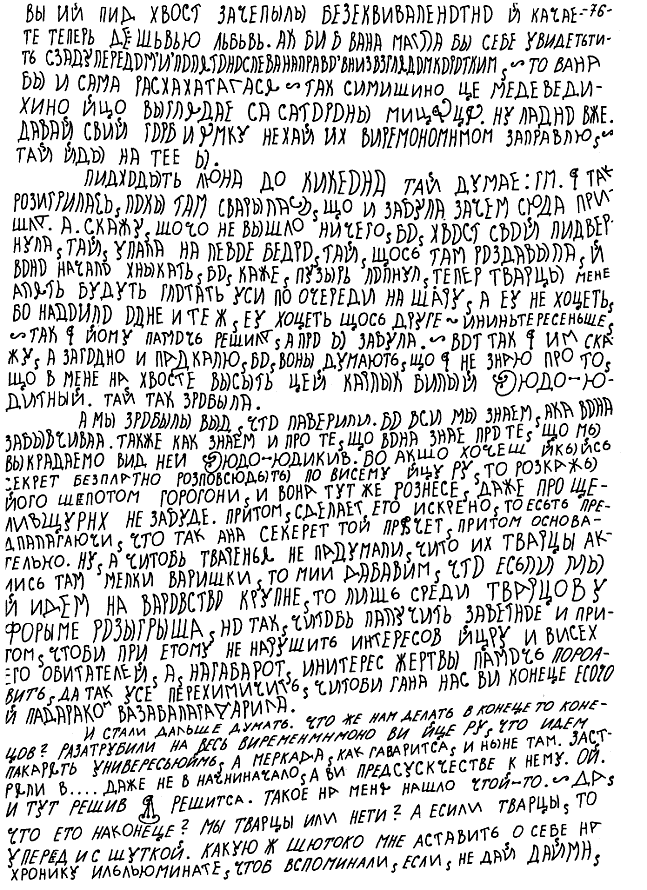 ВЫ ИЙ ПИД ХВОСТ ЗАЧЕПЫЛЫ БЕЗЕКВИВАЛЕНДТНО Й КАЧАЕ- -76-
ТЕ ТЕПЕРЬ ДЕШЬВЬЮ ЛЬБЬВЬ. АК БИ Б ВАНА МАГЛА БЫ СЕБЕ УВИДЕТЬТИ-
ТЬ СЗАДУ ПЕРЕДОМ И ПОПЯТНОСЛЕВАНАПРАВО ВНИЗ ВЗГЛЯДОМ КОРОТКИМ, ~ ТО ВАНА
БЫ И САМА РАСХАХАТАГАСЯ ~ ТАК СИМИШИНО ЦЕ МЕДЕВЕДИ-
ХИНО ЙЦО ВЫГЛЯДАЕ СА САТОРОНЫ МИЦЯЦЯ. НУ ЛАДНО ВЖЕ.
ДАВАЙ СВИЙ ГОРБ И УМКУ НЕХАЙ ИХ ВИРЕМОНОМНМОМ ЗАПРАВЛЮ, ~
ТАЙ ЙДЫ НА ТЕЕ Ы.
ПИДХОДЫТЬ ЛЮНА ДО КИКЕОНА ТАЙ ДУМАЕ: ГМ. Я ТАК
РОЗИГРИЛАСЬ, ПОКЫ ТАМ СВАРЫЛАСЬ, ЩО И ЗАБУЛА ЗАЧЕМ СЮДА ПРИ-
ШЛА. А. СКАЖУ, ЩОЧО НЕ ВЫШЛО НИЧЕГО, БО, ХВОСТ СВОЙ ПИДВЕР-
НУЛА, ТАЙ, УПАЛА НА ЛЕВОЕ БЕДРО, ТАЙ, ЩОСЬ ТАМ РОЗДАВЫЛА, Й
ВОНО НАЧАЛО ХНЫКАТЬ, БО, КАЖЕ, ПУЗЫРЬ ЛОПНУЛ, ТЕПЕР ТВАРЦЫ МЕНЕ
АПЯТЬ БУДУТЬ ГЛОТАТЬ УСИ ПО ОЧЕРЕДИ НА ШАРУ, А ЕУ НЕ ХОЦЕТЬ,
БО НАДОИЛО ОДНЕ И ТЕ Ж, ЕУ ХОЦЕТЬ ЩОСЬ ДРУГЕ ~ ИНИНЬТЕРЕСЕНЬШЕ,
~ ТАК Я ЙОМУ ПАМОЧЬ РЕШИЛА, А ПРО Ы ЗАБУЛА. ~ ВОТ ТАК Я ИМ СКА-
ЖУ, А ЗАГОДНО И ПАДКАЛЮ, БО, ВОНЫ ДУМАЮТЬ, ЩО Я НЕ ЗНАЮ ПРО ТО,
ЩО В МЕНЕ НА ХВОСТЕ ВЫСЫТЬ ЦЕЙ КАПЛЫК БИЛЫЙ ЮДО-Ю-
ДИТНЫЙ. ТАЙ ТАК ЗРОБЫЛА.
А МЫ ЗРОБЫЛЫ ВЫД, ЧТО ПАВЕРИЛИ. БО ВСИ МЫ ЗНАЕМ, АКА ВОНА
ЗАБЫВЧИВАЯ. ТАКЖЕ КАК ЗНАЕМ И ПРО ТЕ, ЩО ВОНА ЗНАЕ ПРО ТЕ, ЩО МЫ
ВЫКРАДАЕМО ВИД НЕИ ЮДО-ЮДИКИВ. БО АКШО ХОЧЕШ ЙКЫЙСЬ
СЕКРЕТ БЕЗПЛАТНО РОЗПОВСЮДЫТЫ ПО ВИСЕМУ ЙЦУ РУ, ТО РОЗКАЖЫ
ЙОГО ШЕПОТОМ ГОРОГОНИ, И ВОНА ТУТ ЖЕ РОЗНЕСЕ, ДАЖЕ ПРО ЩЕ-
ЛИВЩУРНХ НЕ ЗАБУДЕ. ПРИТОМ, СДЕЛАЕТ, ЕТО ИСКРЕНО, ТО ЕСТЬ ПРЕ-
ДПАЛАГАЮЧИ, ЧТО ТАК АНА СЕКЕРЕТ ТОЙ ПРЯЧЕТ, ПРИТОМ ОСНОВА-
ТЕЛЬНО. НУ, А ЧИТОБЬ ТВАЧЕНЬЯ НЕ ПАДУМАЛИ, ЧИТО ИХ ТВАРЦЫ АК-
ЛИСЬ ТАМ МЕЛКИ ВАРИШКИ, ТО МИИ ДАБАВИМ, ЧТО ЕСЬЛИ МЫ
Й ИДЕМ НА ВАРОВСТВО КРУПНЕ, ТО ЛИШЬ СРЕДИ ТВАРЦОВ У
ФОРЫМЕ РОЗЫГРЫША, НО ТАК, ЧИТОБЬ ПАЛУЧИТЬ ЗАВЕТНОЕ И ПРИ-
ТОМ, ЧТОБИ ПРИ ЕТОМУ НЕ НАРУШИТЬ ИНТЕРЕСОВ ЙЦРУ И ВИСЕХ
ЕГО ОБИТАТЕЛЕЙ, А, НАГАБАРОТ, ИНИТЕРЕС ЖЕРТВЫ ПАМОЧЬ ПОРОА-
ВИТЬ, ДА ТАК УСЕ ПЕРЕХИМИЧИТЬ, ЧИТОБИ ГАНА НАС ВИ КОНЕЦЕ ЕСОГО
Й ПАДАРАКО ВАЗАБАЛАГАДАРИЛА.
И СТАЛИ ДАЛЬШЕ ДУМАТЬ. ЧТО ЖЕ НАМ ДЕЛАТЬ В КОНЕЦЕ ТО КОНЕ-
ЦОВ? РАЗАТРУБИЛИ НА ВЕСЬ ВИРЕМЕНМНМОНО ВИ ЙЦЕ РУ, ЧТО ИДЕМ
ПАКАРЯТЬ УНИВЕРЕСЬЮЙМЬ, А МЕРКАДА, КАК ГАВАРИТСА, И НЫНЕ ТАМ. ЗАСТ-
РЯЛИ В .... ДАЖЕ НЕ В НАЧНИНАЧАЛО, А ВИ ПРЕДСУСКЧЕСТВЕ К НЕМУ. ОЙ.
И ТУТ РЕШИВ Я РЕШИТСА. ТАКОЕ НА МЕНЯ НАШЛО ЧТОЙ-ТО. ~ ДА,
ЧТО ЕТО НАКОНЕЦЕ? МЫ ТВАРЦЫ ИЛИ НЕТИ? А ЕСИЛИ ТВАРЦЫ, ТО
УПЕРЕД И С ШУТКОЙ. КАКУЮ Ж ШЮТОКО МНЕ АСТАВИТЬ О СЕБЕ НА
ХРОНИКУ ИЛЬЛЬЮМИНАТЕ, ЧТОБ ВСПОМИНАЛИ, ЕСЛИ, НЕ ДАЙ ДАЙМА,